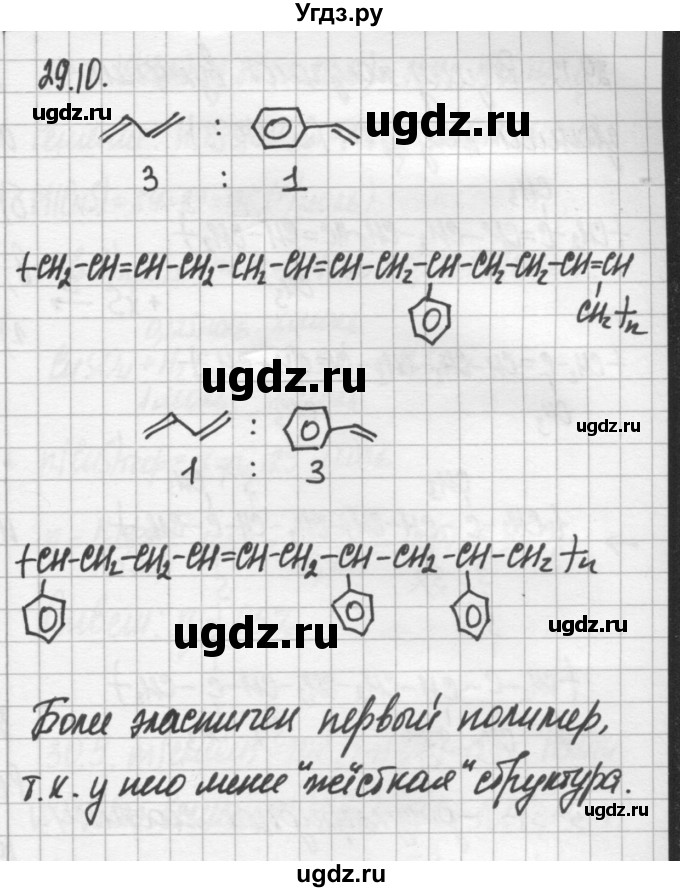 Угдз.ру
29.10.
ugdz.ru
ugdz.ru
:
3 : 1
+CH2-CH=CH-CH2-CH2-CH=CH-CH2-CH-CH2-CH2-CH=CH
CH2+n
ugdz.ru
ugdz.ru
:
1 : 3
+CH-CH2-CH2-CH=CH-CH2-CH-CH2-CH-CH2+n
ugdz.ru
ugdz.ru
Более эластичен первый полимер,
т.к. у него менее "жёсткая" структура.
ugdz.ru
ugdz.ru